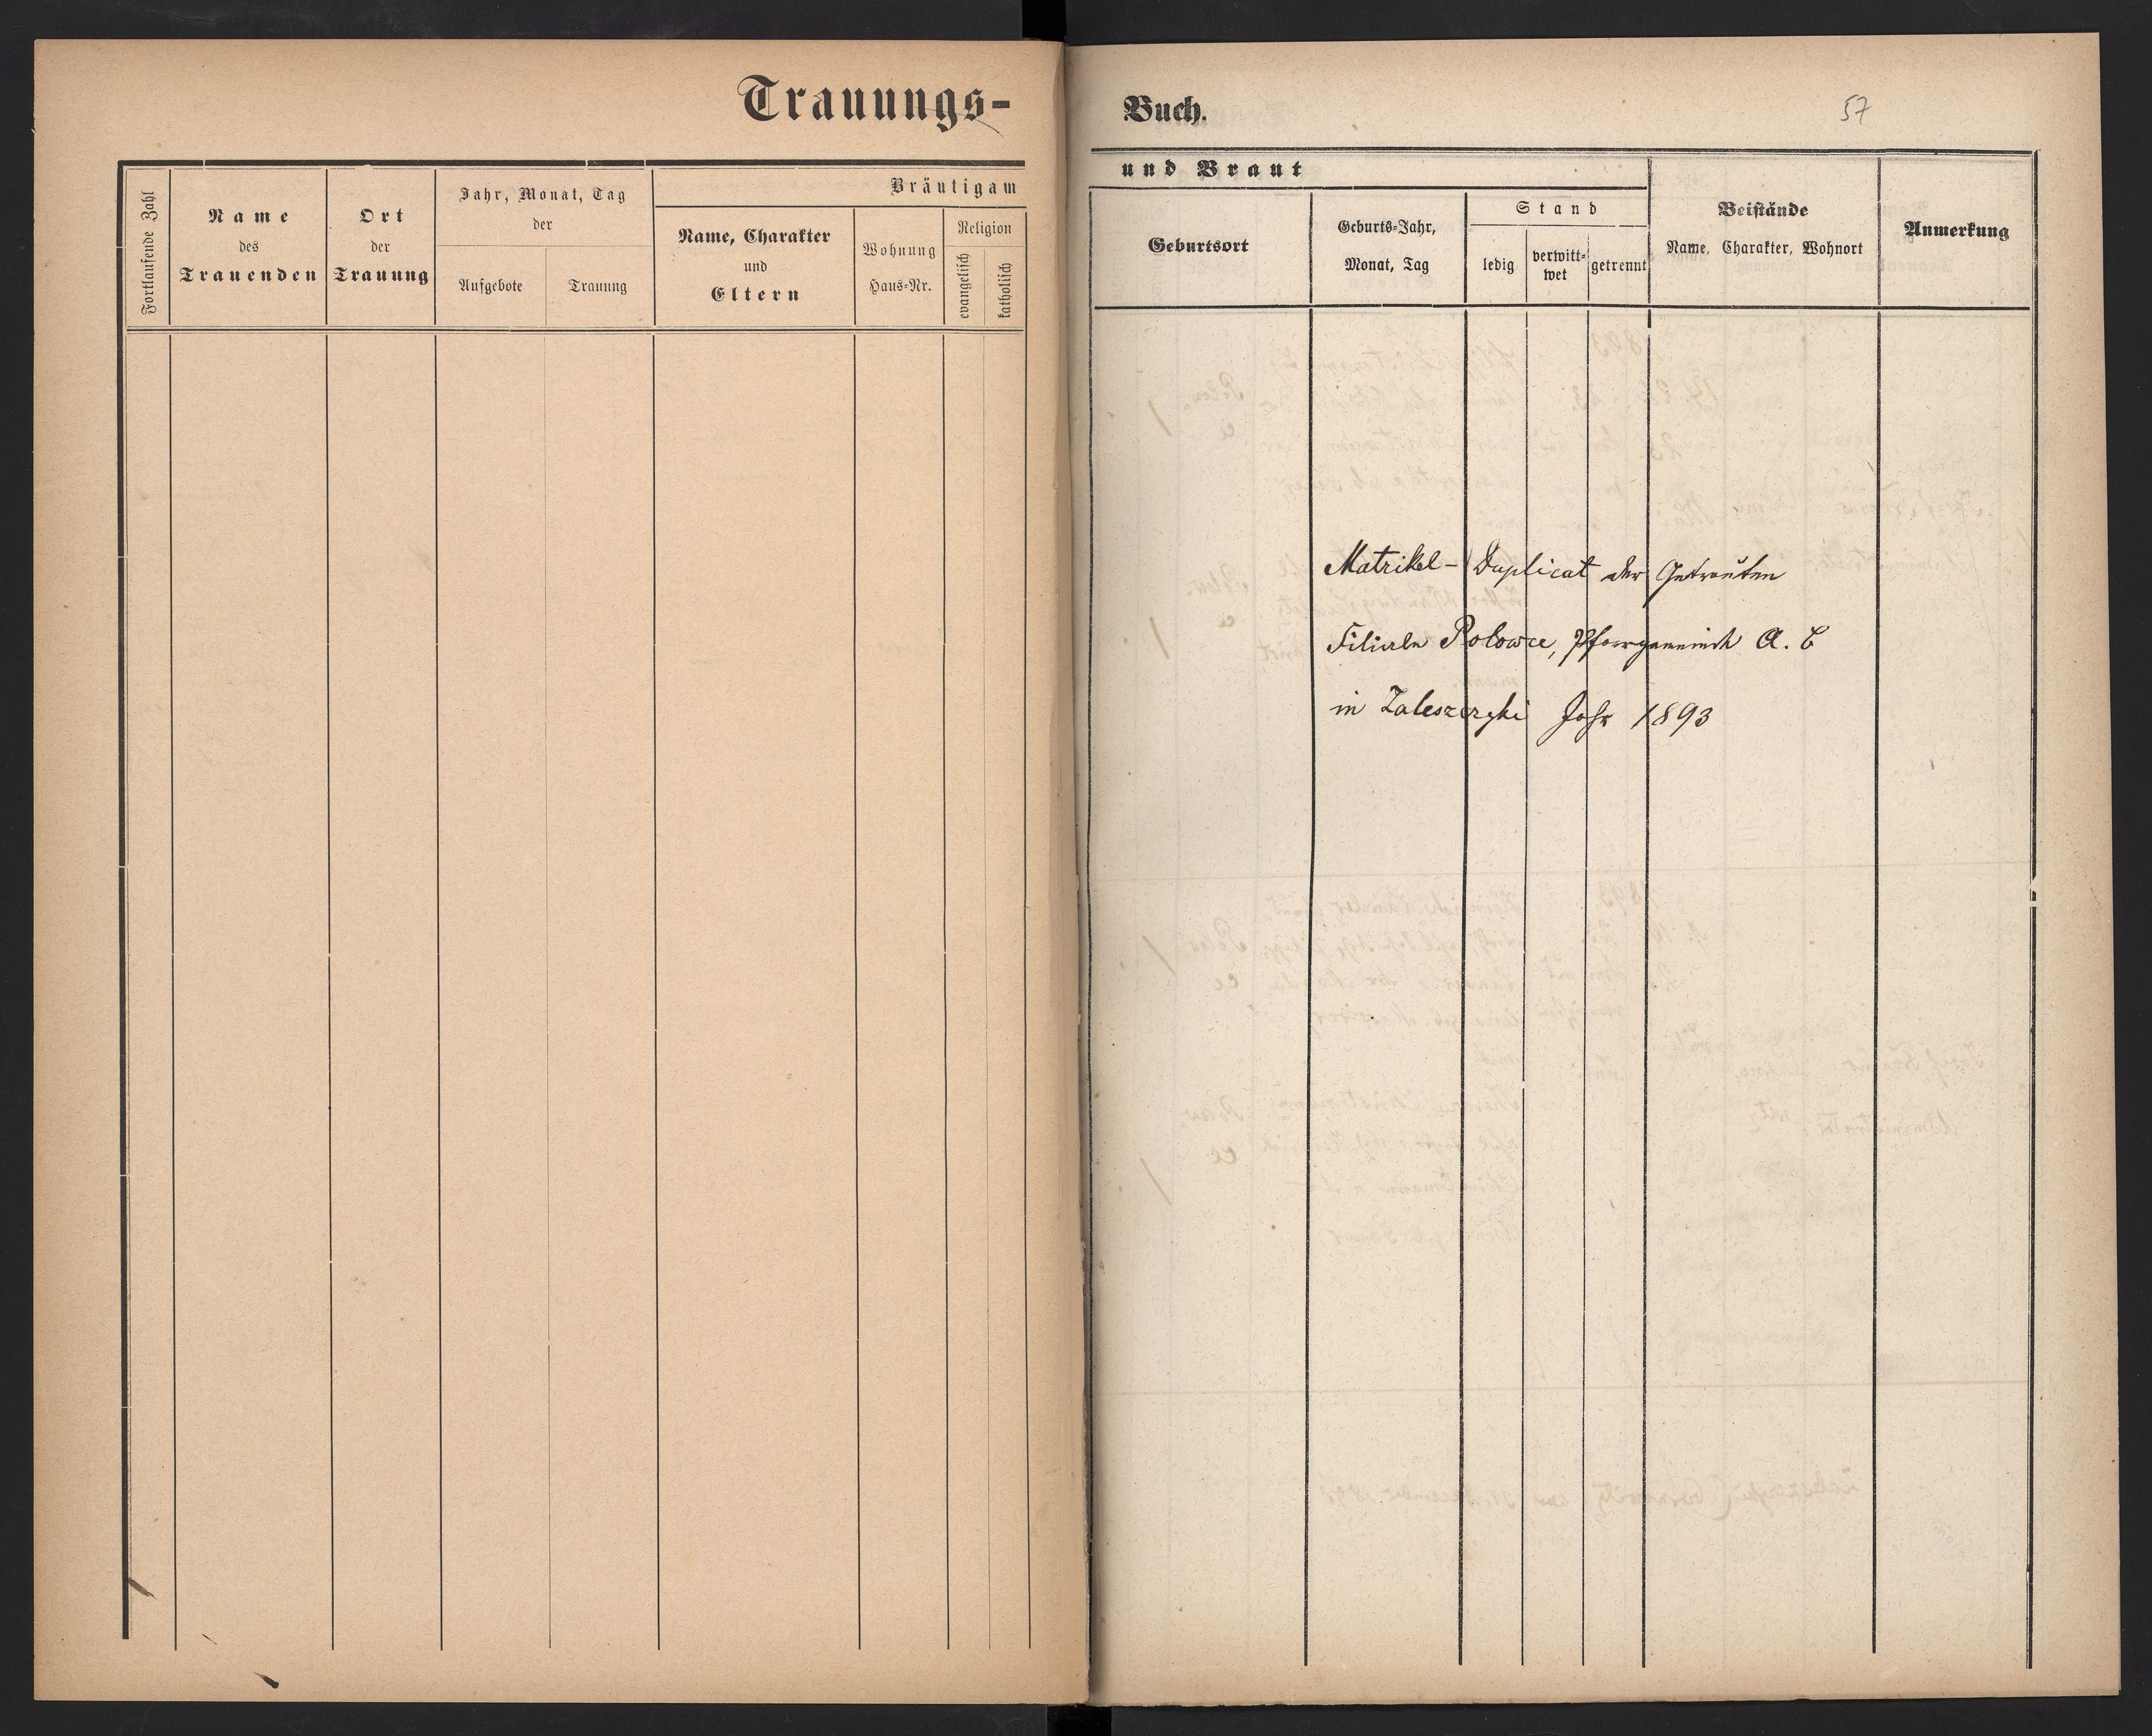 Trauungs-
Fortlaufende Zahl
Name
des
Trauenden
Ort
der
Trauung
Jahr, Monat, Tag
der
Aufgebote
Trauung
Bräutigam
Name, Charakter
und
Eltern
Wohnung
Haus-Nr.
Religion
evangelisch
katholisch
Buch.
57
und Braut
Geburtsort
Geburts-Jahr,
Monat, Tag
Stand
ledig
verwitt-
wet
getrennt
Beistände
Name, Charakter, Wohnort
Anmerkung
Matrikel-Duplicat der Getrauten
Filiale Polowce, Pfarrgemeinde A. C
in Zaleszczyki Jahr 1893